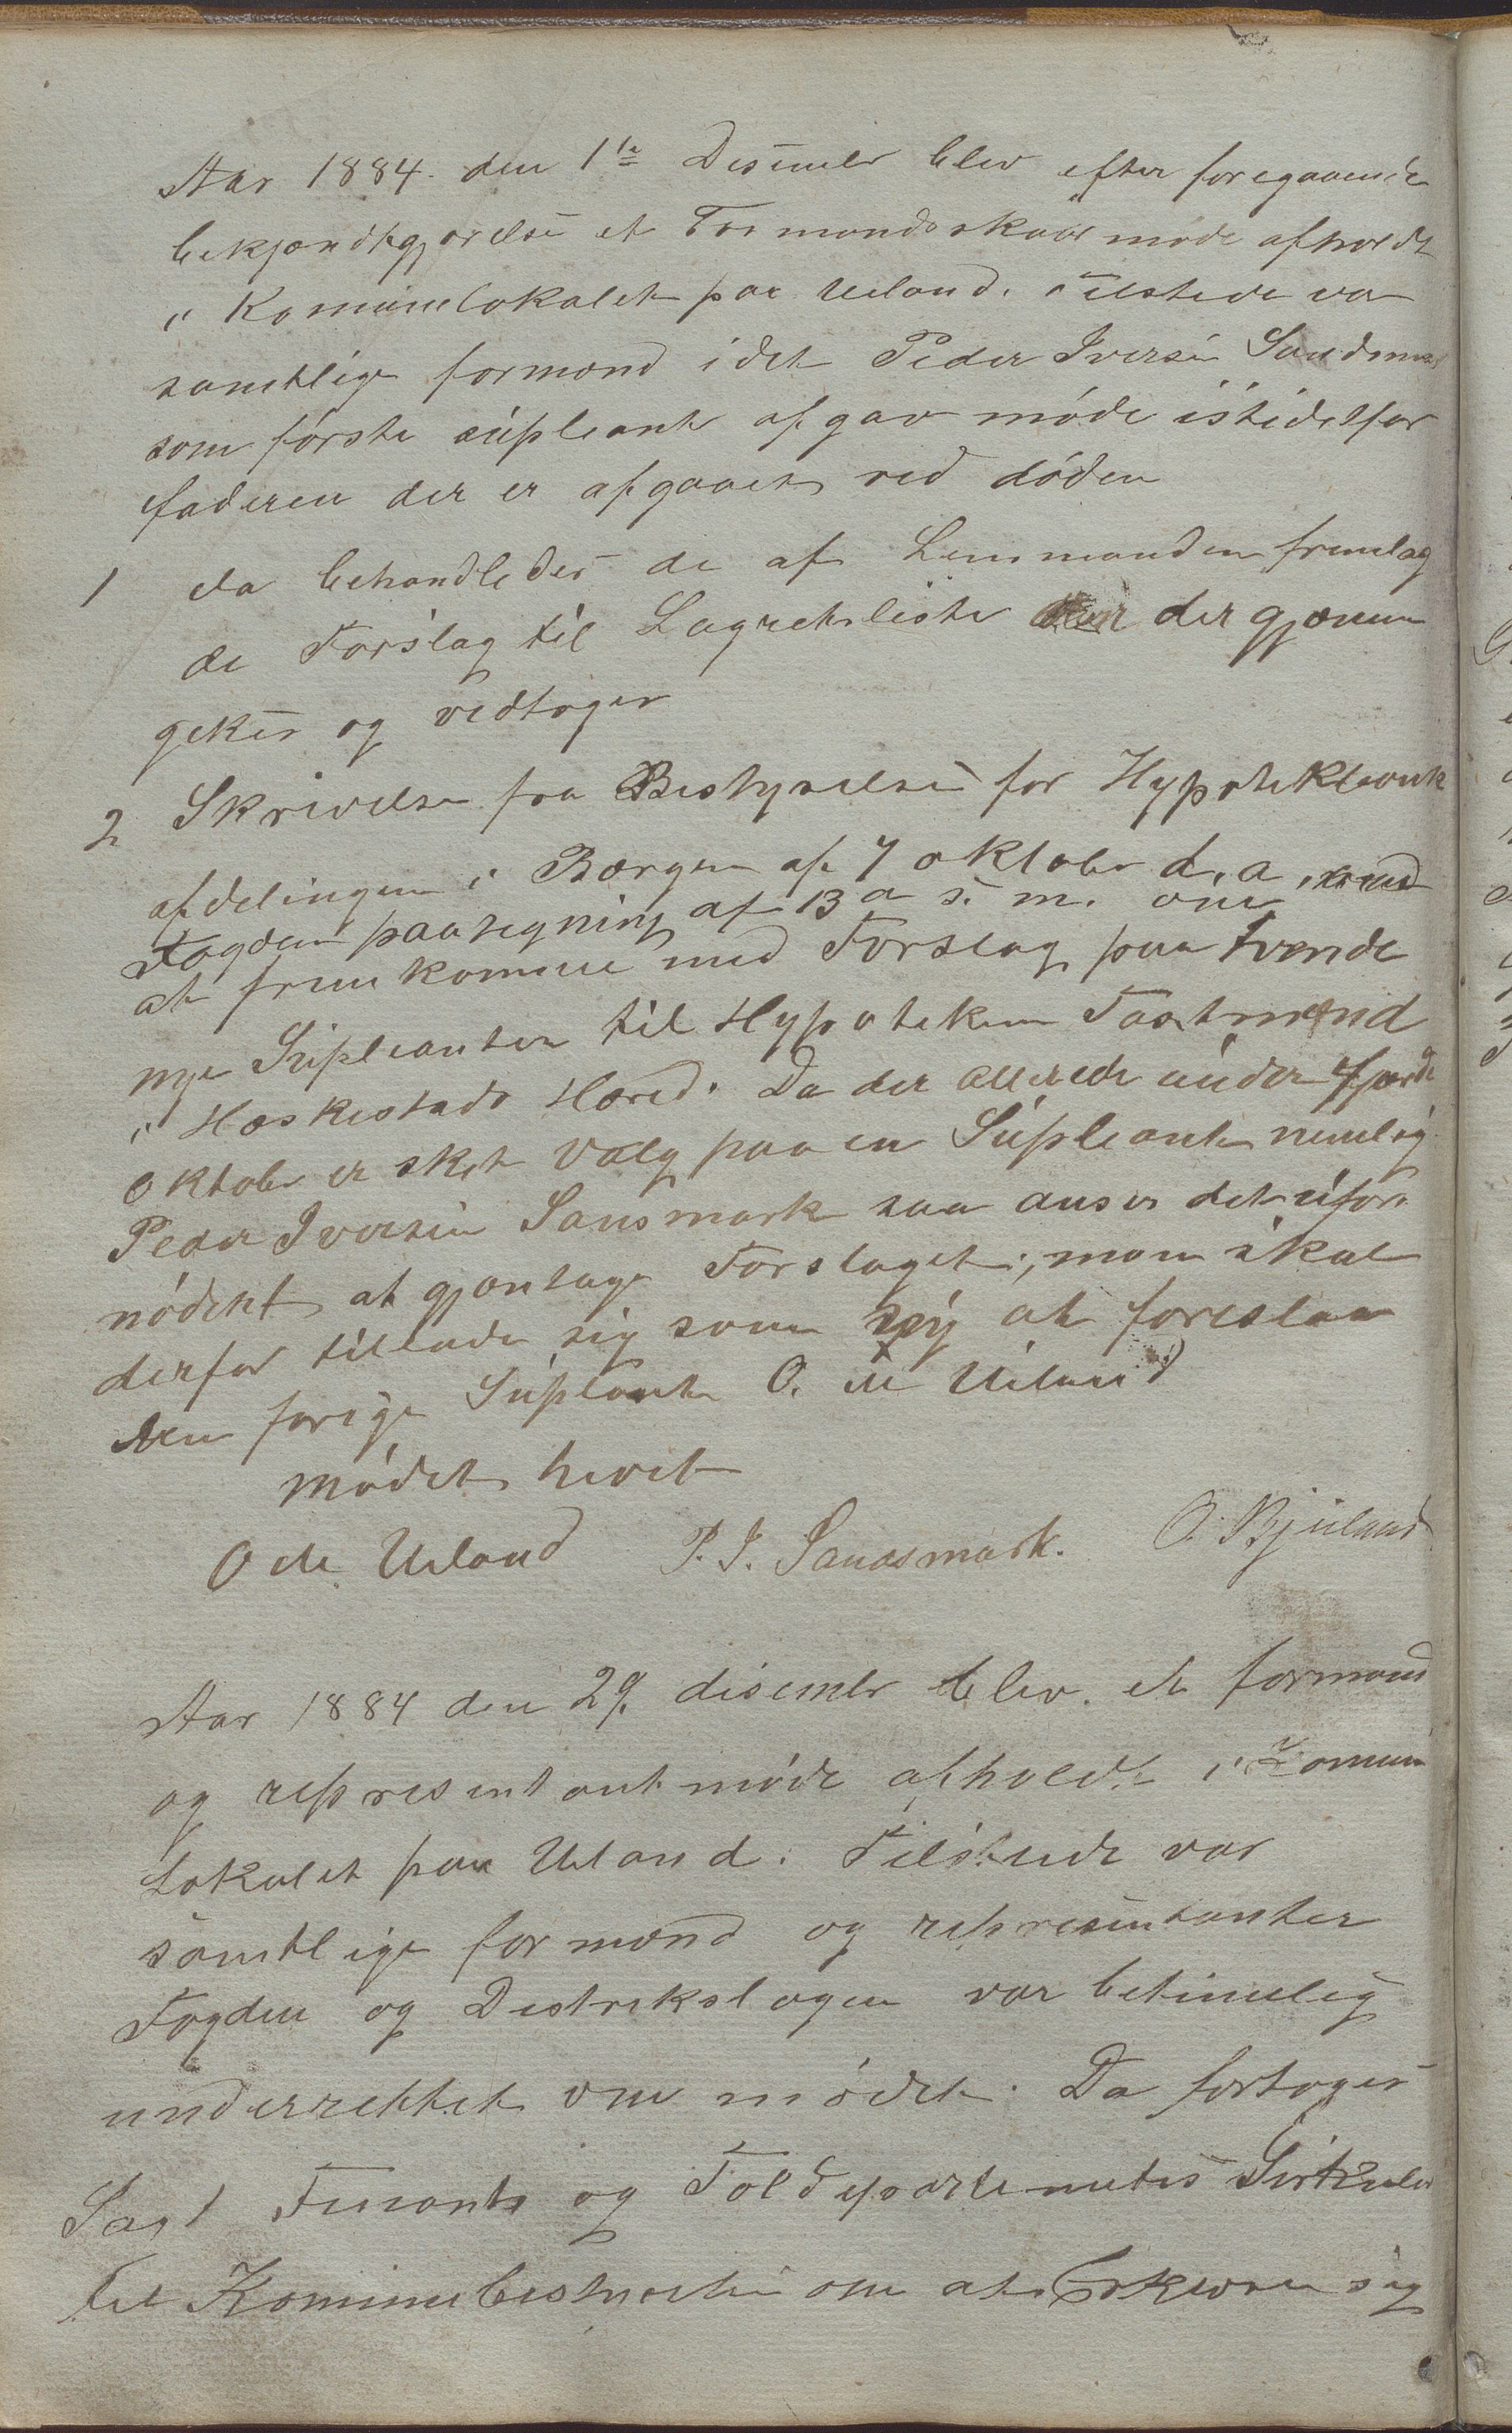 Aar 1884. den 1te Desember blev efter foregaaende
bekjændtgjørelse et Formandsskabs møde afholdt
i Komunelokalet paa Ueland. Tilstede var
samtlige formænd idet Peder Iversen Sandsmark
som første supleant afgav møde istedetfor
faderen der er afgaaet ved døden
1 da behandledes de af Lensmanden fremlag
de Forslag til Lagretsliste der gjænem
gekes og vedtoges
2 Skrivelse fra Bestyrelsen for Hypotekbank
afdelingen i Bergen af 7 oktober d.a. med
Fogden paategning af 13 a s. m. om
at fremkomme med Forslag paa tvende
nye Supleanter til Hypoteken Taxtmænd
i Heskestads Hered. Da der allerede under 4 forde
Oktober er sket Valg paa en Supleant nemlig
Peder Iversen Sansmark saa anses det ufor
nødent at gjentage Forslaget; man skal
derfor tillade sig som ny at foreslaa
den forige Supleant O. M Ueland
Mødet hevet
O M. Ueland P. I. Sandsmark. O. Bjuland
Aar 1884 den 29. desember blev et formand
og representantmøde afholdt i Komun
Lokalet paa Ueland. Tilstede var
samtlige formænd og representanter
Fogden og Distrekslægen var betimelig
underrettet om mødet. Da fortoges
Sag 1 Finants og Toldepartemetes Sirkulær
til Komunebestyrelsen om at Erklære sig